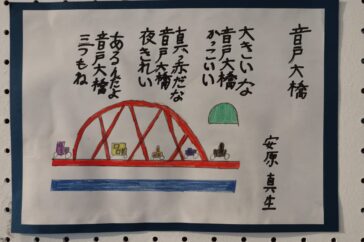 音戸大橋
安原真生
大きいな
音戸大橋
かっこいい
真っ赤だな
音戸大橋
夜きれい
あるんだよ
音戸大橋
三つもね